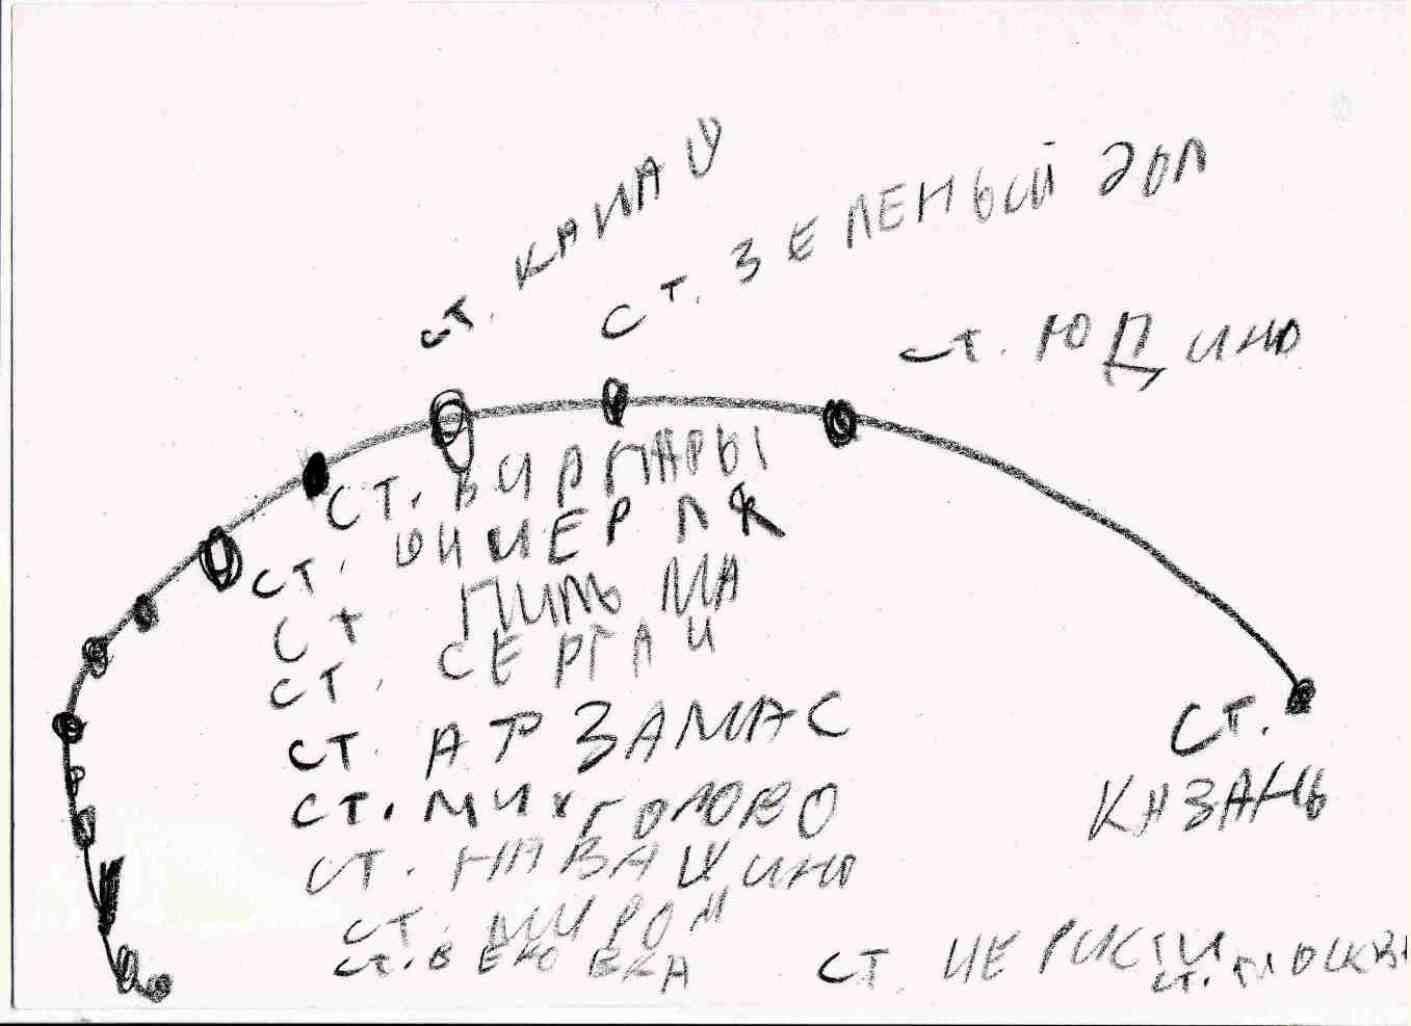 ст. КАНАШ
ст. ЗЕЛЕНЫЙ ДОЛ
ст. ЮДИНО
СТ. ВУРНАРЫ
СТ. ШУМЕРЛЯ
СТ ПИЛЬМА
СТ. СЕРГАЧ
СТ. АРЗАМАС
СТ. МУХТОЛОВО
СТ. НАВАШИНО
СТ. МУРОМ
СТ. ВЕКОВКА
СТ.
КАЗАНЬ
СТ ЧЕРУСТИ
СТ. МОСКВА